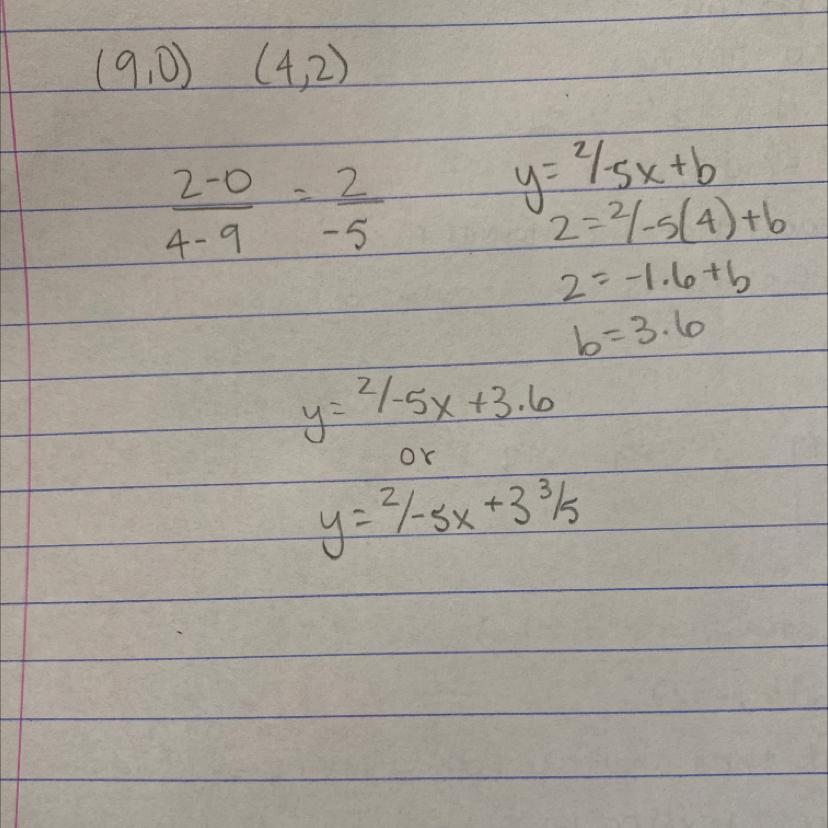 (9,0) (4,2)
2-0 / 4-9 = 2 / -5
y = 2/-5x + b
2 = 2/-5(4) + b
2 = -1.6 + b
b = 3.6
y = 2/-5x + 3.6
or
y = 2/-5x + 3 3/5